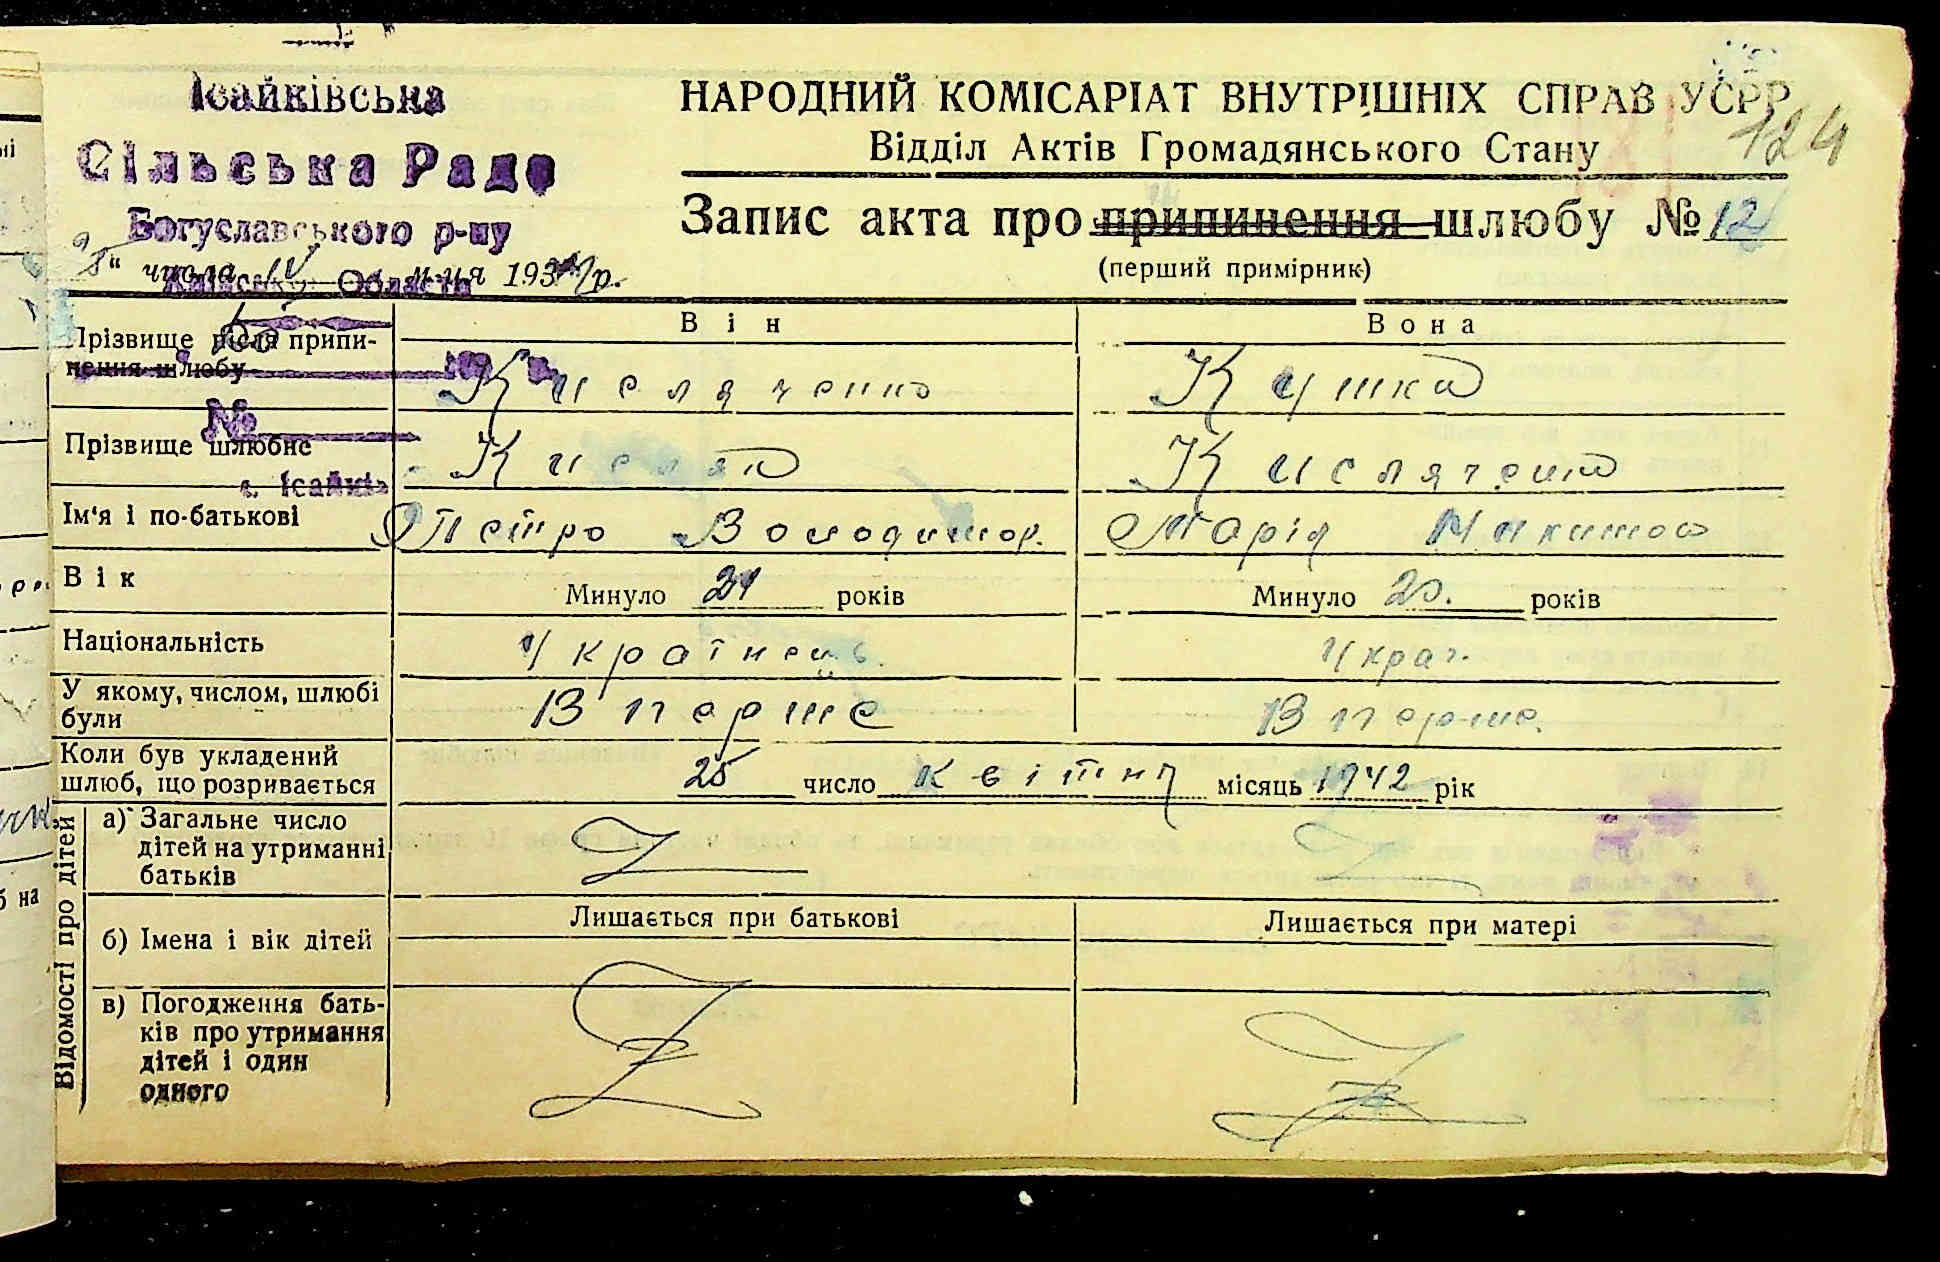 Ісайківська
Сільська Рада
Богуславського р-ну
Київська Область
25 " числа IV м-ця 193
№
с. Ісайки
НАРОДНИЙ КОМІСАРІАТ ВНУТРІШНІХ СПРАВ УСРР
124
Відділ Актів Громадянського Стану
Запис акта про припинення шлюбу № 12
(перший примірник)
Він
Вона
Прізвище після припи-
нення шлюбу
Кисляченко
Кушка
Прізвище шлюбне
Кисляч
Ім'я і по-батькові
Петро Володимир.
Марія Микитов
Вік
Минуло 21 років
Минуло 20. років
Національність
Українець.
Украї.
У якому, числом, шлюбі
були
В перше
В перше.
Коли був укладений
шлюб, що розривається
25 число квітня місяць 1942 рік
Відомості про дітей
а) Загальне число
дітей на утриманні
батьків
Лишається при батькові
Лишається при матері
б) Імена і вік дітей
в) Погодження бать-
ків про утримання
дітей і один
одного
б на